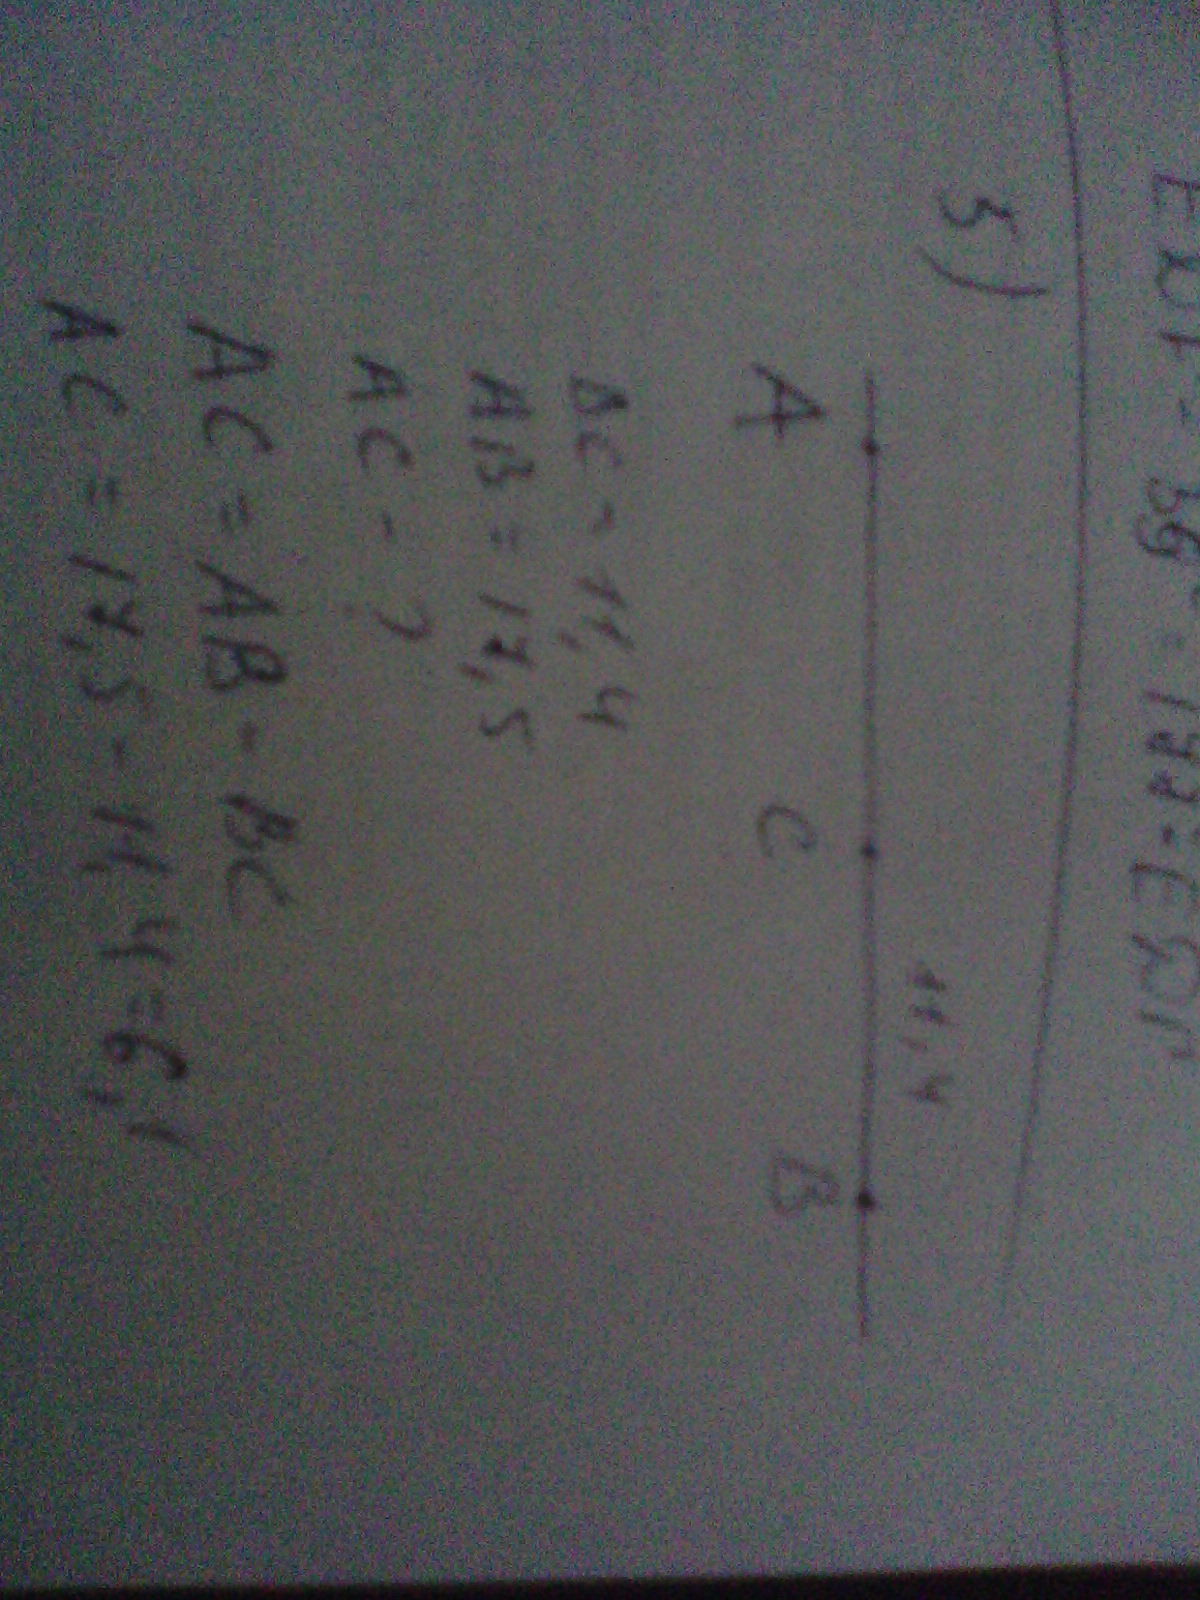 3)
11,4
A C B
BC - 11,4
AB = 17,5
AC - ?
AC = AB - BC
AC = 17,5 - 11,4 = 6,1